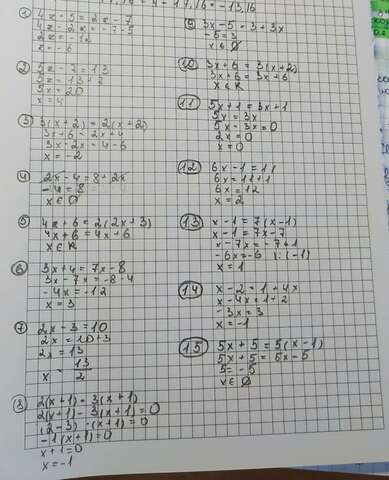 4 - 17,16 = -13,16
1 4x - 5 = 2x - 7
4x - 2x = -7 - 5
2x = -12
x = -6
2 5x - 7 = 13
5x = 13 + 7
5x = 20
x = 4
3 3(x + 2) = 2(x + 2)
3x + 6 = 2x + 4
3x - 2x = 4 - 6
x = -2
4 2x - 4 = 8 + 2x
-4 = 8
x ∈ Ø
5 4x + 6 = 2(2x + 3)
4x + 6 = 4x + 6
x ∈ R
6 3x + 4 = 7x - 8
3x - 7x = -8 - 4
-4x = -12
x = 3
7 2x - 3 = 10
2x = 10 + 3
2x = 13
x = 13/2
8 2(x + 1) = 3(x + 1)
2(x + 1) - 3(x + 1) = 0
(2 - 3) · (x + 1) = 0
-1(x + 1) = 0
x + 1 = 0
x = -1
9 3x - 5 = 3 + 3x
-5 = 3
x ∈ Ø
10 3x + 6 = 3(x + 2)
3x + 6 = 3x + 6
x ∈ R
11 5x + 1 = 3x + 1
5x = 3x
5x - 3x = 0
2x = 0
x = 0
12 6x - 1 = 11
6x = 11 + 1
6x = 12
x = 2
13 x - 1 = 7(x - 1)
x - 1 = 7x - 7
x - 7x = -7 + 1
-6x = -6 | : (-1)
x = 1
14 x - 2 = 1 + 4x
x - 4x = 1 + 2
-3x = 3
x = -1
15 5x + 5 = 5(x - 1)
5x + 5 = 5x - 5
5 = -5
x ∈ Ø